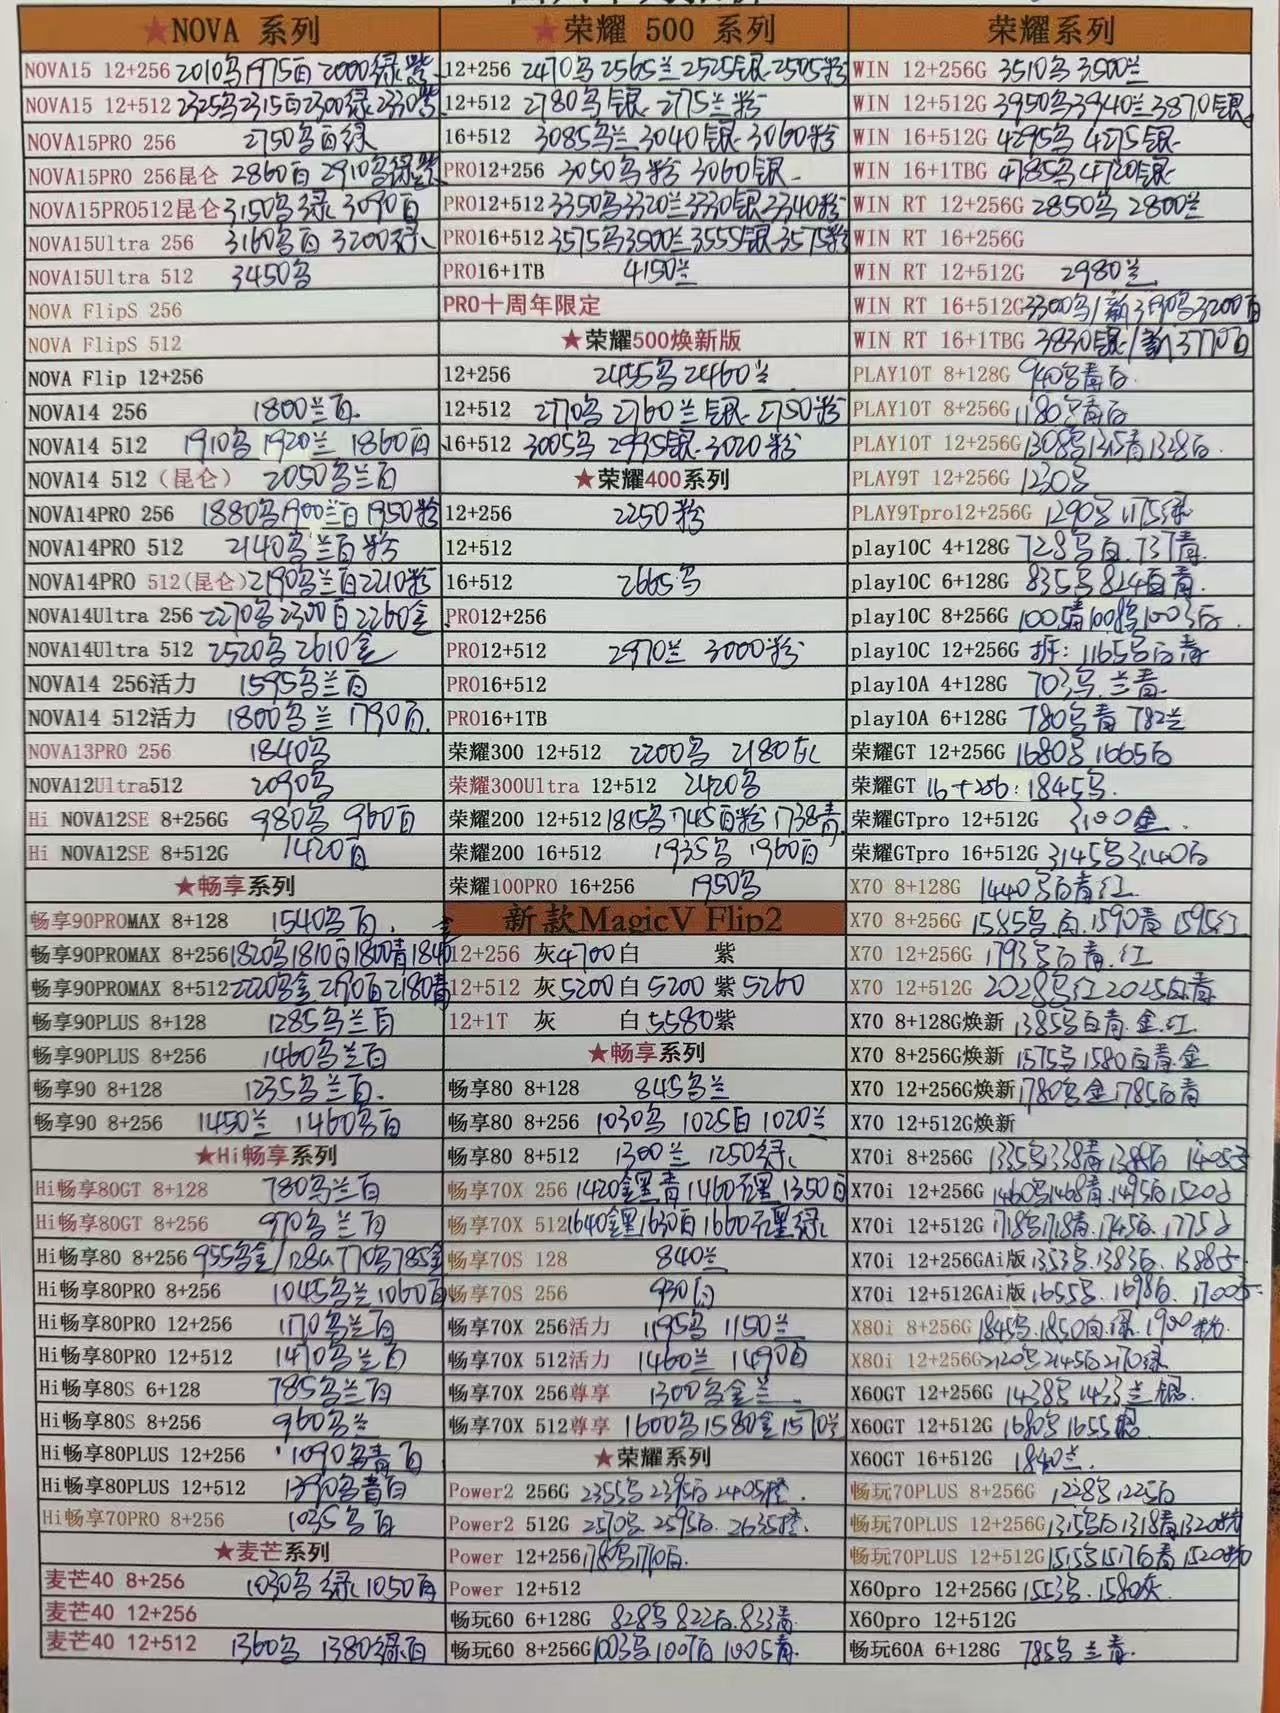 ★NOVA 系列
NOVA15 12+256 2010乌1975白2000绿紫
NOVA15 12+512 2325乌2315白2300绿2330紫
NOVA15PRO 256 2750乌白绿
NOVA15PRO 256昆仑 2860白 2910乌绿紫
NOVA15PRO512昆仑 3150乌绿 3090白
NOVA15Ultra 256 3160乌白 3200绿
NOVA15Ultra 512 3450乌
NOVA FlipS 256
NOVA FlipS 512
NOVA Flip 12+256
NOVA14 256 1800兰白
NOVA14 512 1910乌 1920兰 1860白
NOVA14 512（昆仑） 2050乌兰白
NOVA14PRO 256 1880乌1900兰白1950粉
NOVA14PRO 512 2140乌兰白粉
NOVA14PRO 512(昆仑)2190乌兰白2210粉
NOVA14Ultra 256 2270乌2300白2260金
NOVA14Ultra 512 2520乌2610金
NOVA14 256活力 1595乌兰白
NOVA14 512活力 1800乌兰 1790白
NOVA13PRO 256 1840乌
NOVA12Ultra512 2090乌
Hi NOVA12SE 8+256G 980乌 960白
Hi NOVA12SE 8+512G 1420白
★畅享系列
畅享90PROMAX 8+128 1540乌白 金
畅享90PROMAX 8+256 1820乌1810白1800青1840
畅享90PROMAX 8+512 2220乌金2190白2180青
畅享90PLUS 8+128 1285乌兰白
畅享90PLUS 8+256 1460乌兰白
畅享90 8+128 1235乌兰白
畅享90 8+256 1450兰 1460乌白
★Hi畅享系列
Hi畅享80GT 8+128 780乌兰白
Hi畅享80GT 8+256 970乌兰白
Hi畅享80 8+256 955乌金/128G770乌785金
Hi畅享80PRO 8+256 1045乌兰1060白
Hi畅享80PRO 12+256 1170乌兰白
Hi畅享80PRO 12+512 1470乌兰白
Hi畅享80S 6+128 785乌兰白
Hi畅享80S 8+256 960乌兰
Hi畅享80PLUS 12+256 1090乌青白
Hi畅享80PLUS 12+512 1390乌青白
Hi畅享70PRO 8+256 1035乌白
★麦芒系列
麦芒40 8+256 1030乌绿1050白
麦芒40 12+256
麦芒40 12+512 1360乌 1380绿白
★荣耀 500 系列
12+256 2470乌2565兰2525银2505粉
12+512 2780乌银 2775兰粉
16+512 3085乌兰3040银3060粉
PRO12+256 3050乌粉 3060银
PRO12+512 3350乌3320兰3330银3340粉
PRO16+512 3575乌3500兰3555银3575粉
PRO16+1TB 4150兰
PRO十周年限定
★荣耀500焕新版
12+256 2455乌2460兰
12+512 2770乌2760兰银2750粉
16+512 3005乌2995银3020粉
★荣耀400系列
12+256 2250粉
12+512
16+512 2665乌
PRO12+256
PRO12+512 2970兰 3000粉
PRO16+512
PRO16+1TB
荣耀300 12+512 2200乌 2180灰
荣耀300Ultra 12+512 2420乌
荣耀200 12+512 1815乌1745白粉1738青
荣耀200 16+512 1935乌 1960白
荣耀100PRO 16+256 1950乌
新款MagicV Flip2
12+256 灰4700白 紫
12+512 灰5200白5200紫5260
12+1T 灰 白5580紫
★畅享系列
畅享80 8+128 845乌兰
畅享80 8+256 1030乌 1025白 1020兰
畅享80 8+512 1300兰 1250绿
畅享70X 256 1420金黑青1460元黑1350白
畅享70X 512 1640金黑1630白1660元黑绿
畅享70S 128 840兰
畅享70S 256 930白
畅享70X 256活力 1195乌 1150兰
畅享70X 512活力 1460兰 1490白
畅享70X 256尊享 1300乌金兰
畅享70X 512尊享 1600乌1580金1570兰
★荣耀系列
Power2 256G 2355乌2395白2405橙
Power2 512G 2570乌2595白2635橙
Power 12+256 1780乌1770白
Power 12+512
畅玩60 6+128G 828乌822白833青
畅玩60 8+256G 1003乌1007白1005青
荣耀系列
WIN 12+256G 3510乌3500兰
WIN 12+512G 3950乌3940兰3870银
WIN 16+512G 4295乌 4275银
WIN 16+1TBG 4785乌4720银
WIN RT 12+256G 2850乌 2800兰
WIN RT 16+256G
WIN RT 12+512G 2980兰
WIN RT 16+512G 3300乌/新3190乌3200白
WIN RT 16+1TBG 3830银/新3770白
PLAY10T 8+128G 940乌青白
PLAY10T 8+256G 1180乌青白
PLAY10T 12+256G 1308乌1315青1328白
PLAY9T 12+256G 1230乌
PLAY9Tpro12+256G 1290乌1175绿
play10C 4+128G 728乌白 737青
play10C 6+128G 835乌814白青
play10C 8+256G 1005青1008乌1003白
play10C 12+256G 拆：1165乌白青
play10A 4+128G 703乌兰青
play10A 6+128G 780乌青 782兰
荣耀GT 12+256G 1680乌1665白
荣耀GT 16+256：1845乌
荣耀GTpro 12+512G 3100金
荣耀GTpro 16+512G 3145乌3140白
X70 8+128G 1440乌白青红
X70 8+256G 1585乌白1590青1595红
X70 12+256G 1793乌白青红
X70 12+512G 2028乌红2025白青
X70 8+128G焕新 1385乌白青金红
X70 8+256G焕新 1575乌1580白青金
X70 12+256G焕新 1780乌金1785白青
X70 12+512G焕新
X70i 8+256G 1335乌1338青1388白 1405
X70i 12+256G 1460乌1468青1495白1520
X70i 12+512G 1718乌1718青1745白1775
X70i 12+256GAi版 1353乌1383白1388
X70i 12+512GAi版 1655乌1698白1700
X80i 8+256G 1845乌1850白绿1900粉
X80i 12+256G 2120乌2145白2170绿
X60GT 12+256G 1438乌1433兰银
X60GT 12+512G 1680乌1655银
X60GT 16+512G 1840兰
畅玩70PLUS 8+256G 1228乌1225白
畅玩70PLUS 12+256G 1315乌白1318青1320粉
畅玩70PLUS 12+512G 1515乌1517白青1520粉
X60pro 12+256G 1553乌1580灰
X60pro 12+512G
畅玩60A 6+128G 785乌兰青